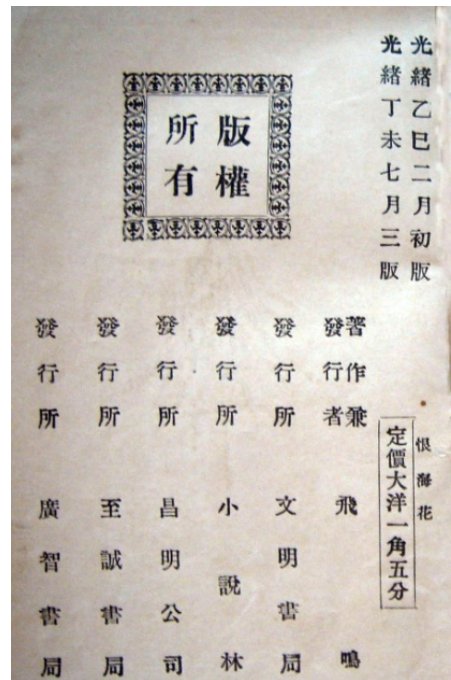 光緒乙巳二月初版
光緒丁未七月三版
版權
所有
恨海花
定價大洋一角五分
著作兼
發行者 飛鳴
發行所 文明書局
發行所 小說林
發行所 昌明公司
發行所 至誠書局
發行所 廣智書局